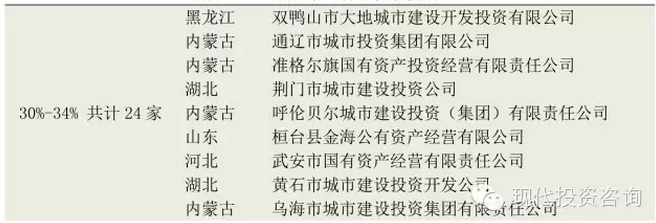 黑龙江 双鸭山市大地城市建设开发投资有限公司
内蒙古 通辽市城市投资集团有限公司
内蒙古 准格尔旗国有资产投资经营有限责任公司
湖北 荆门市城市建设投资公司
30%-34% 共计 24 家 内蒙古 呼伦贝尔城市建设投资（集团）有限责任公司
山东 桓台县金海公有资产经营有限公司
河北 武安市国有资产经营有限责任公司
湖北 黄石市城市建设投资开发公司
内蒙古 乌海市城市建设投资集团有限责任公司
现代投资咨询